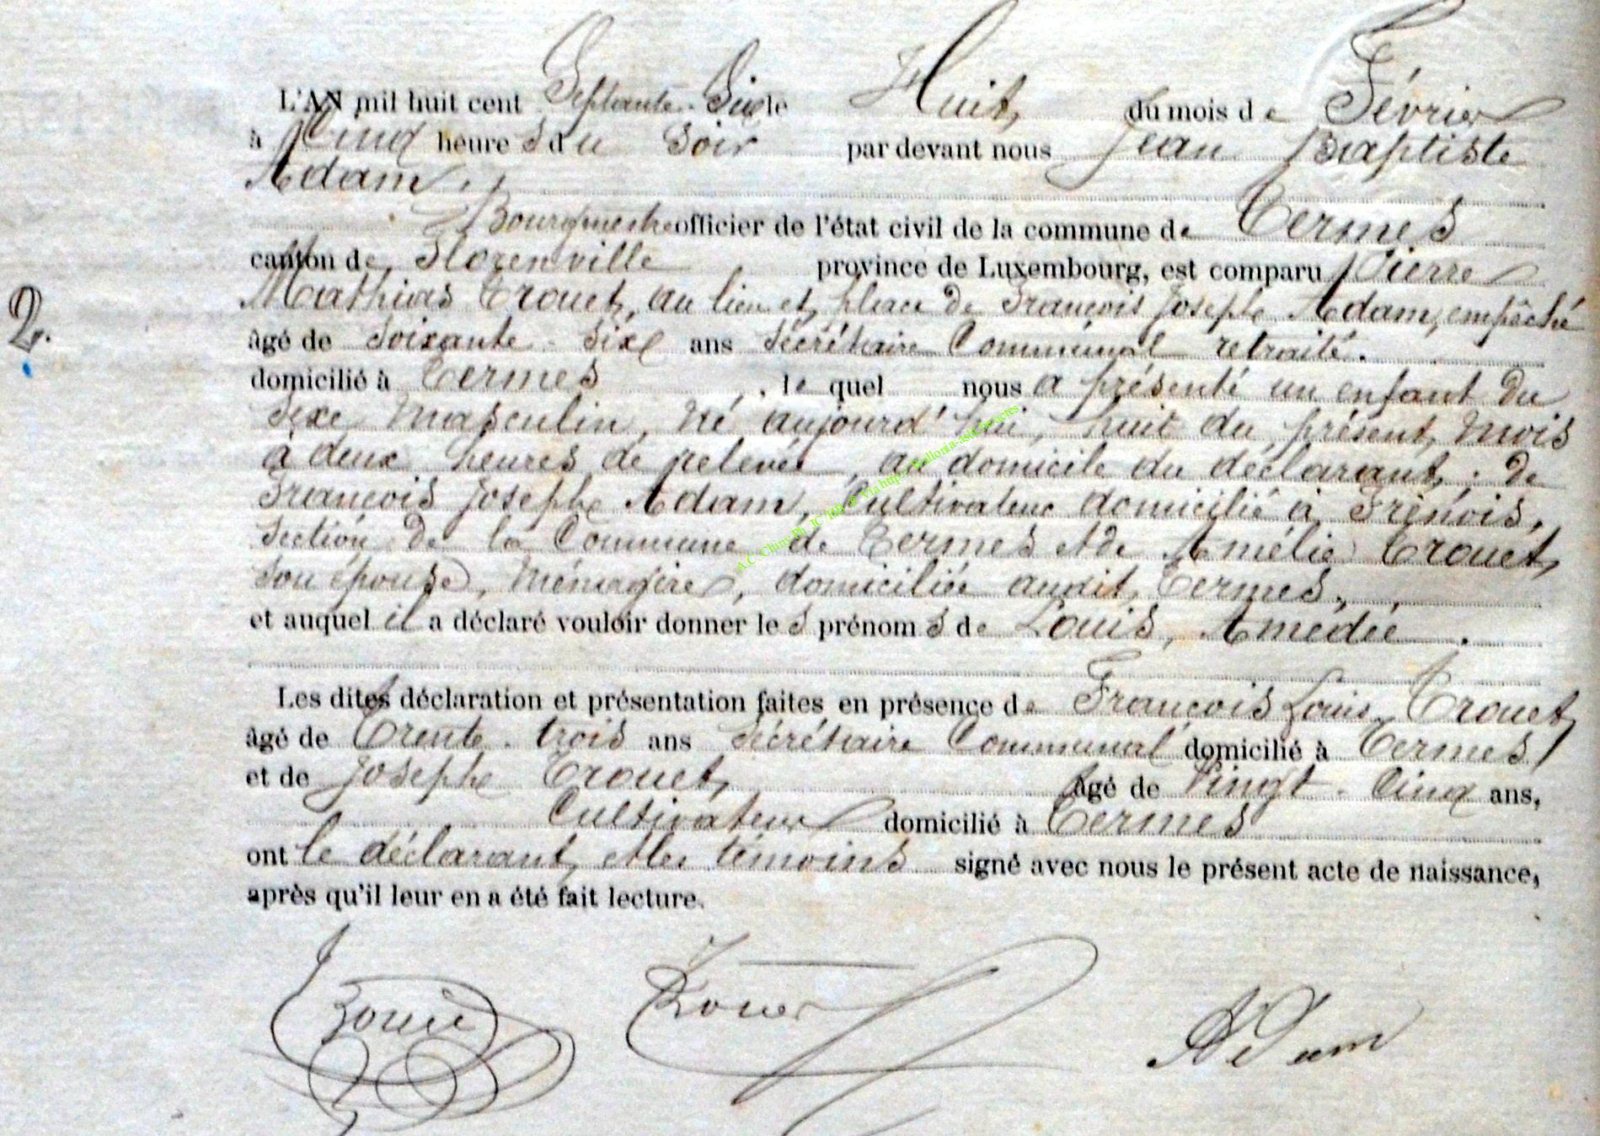 L'AN mil huit cent Septante-Six le Huit, du mois de Février
à Cinq heures du Soir par devant nous Jean Baptiste
Adam,
Bourgmestre officier de l'état civil de la commune de Termes
canton de Florenville province de Luxembourg, est comparu Pierre
Mathias Trouet, au lieu et place de François Joseph Adam, empêché
2.
âgé de Soixante-Six ans Secrétaire Communal retraité.
domicilié à Termes, le quel nous a présenté un enfant du
Sexe Masculin, né aujourd'hui, huit du présent mois
à deux heures de relevée, au domicile du déclarant, de
François Joseph Adam, Cultivateur domicilié à Frénois,
Section de la Commune de Termes et de Amélie Trouet,
Son épouse, Ménagère, domiciliée audit Termes,
et auquel il a déclaré vouloir donner les prénoms de Louis, Amédée.
Les dites déclaration et présentation faites en présence de François Louis Trouet,
âgé de Trente-trois ans Secrétaire Communal domicilié à Termes,
et de Joseph Trouet, âgé de Vingt-Cinq ans,
Cultivateur domicilié à Termes
ont le déclarant, et les témoins signé avec nous le présent acte de naissance,
après qu'il leur en a été fait lecture.
Trouet Trouet Adam